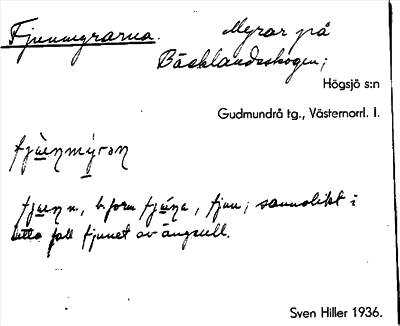 Fjunmyrarna. Myrar på
Bäcklandsskogen;
Högsjö s:n
Gudmundrå tg., Västernorrl. l.
fju̲nmy̲rən
fju̲n n., b. form fju̲na, fjun; sannolikt i
detta fall fjunet av ängsull.
Sven Hiller 1936.